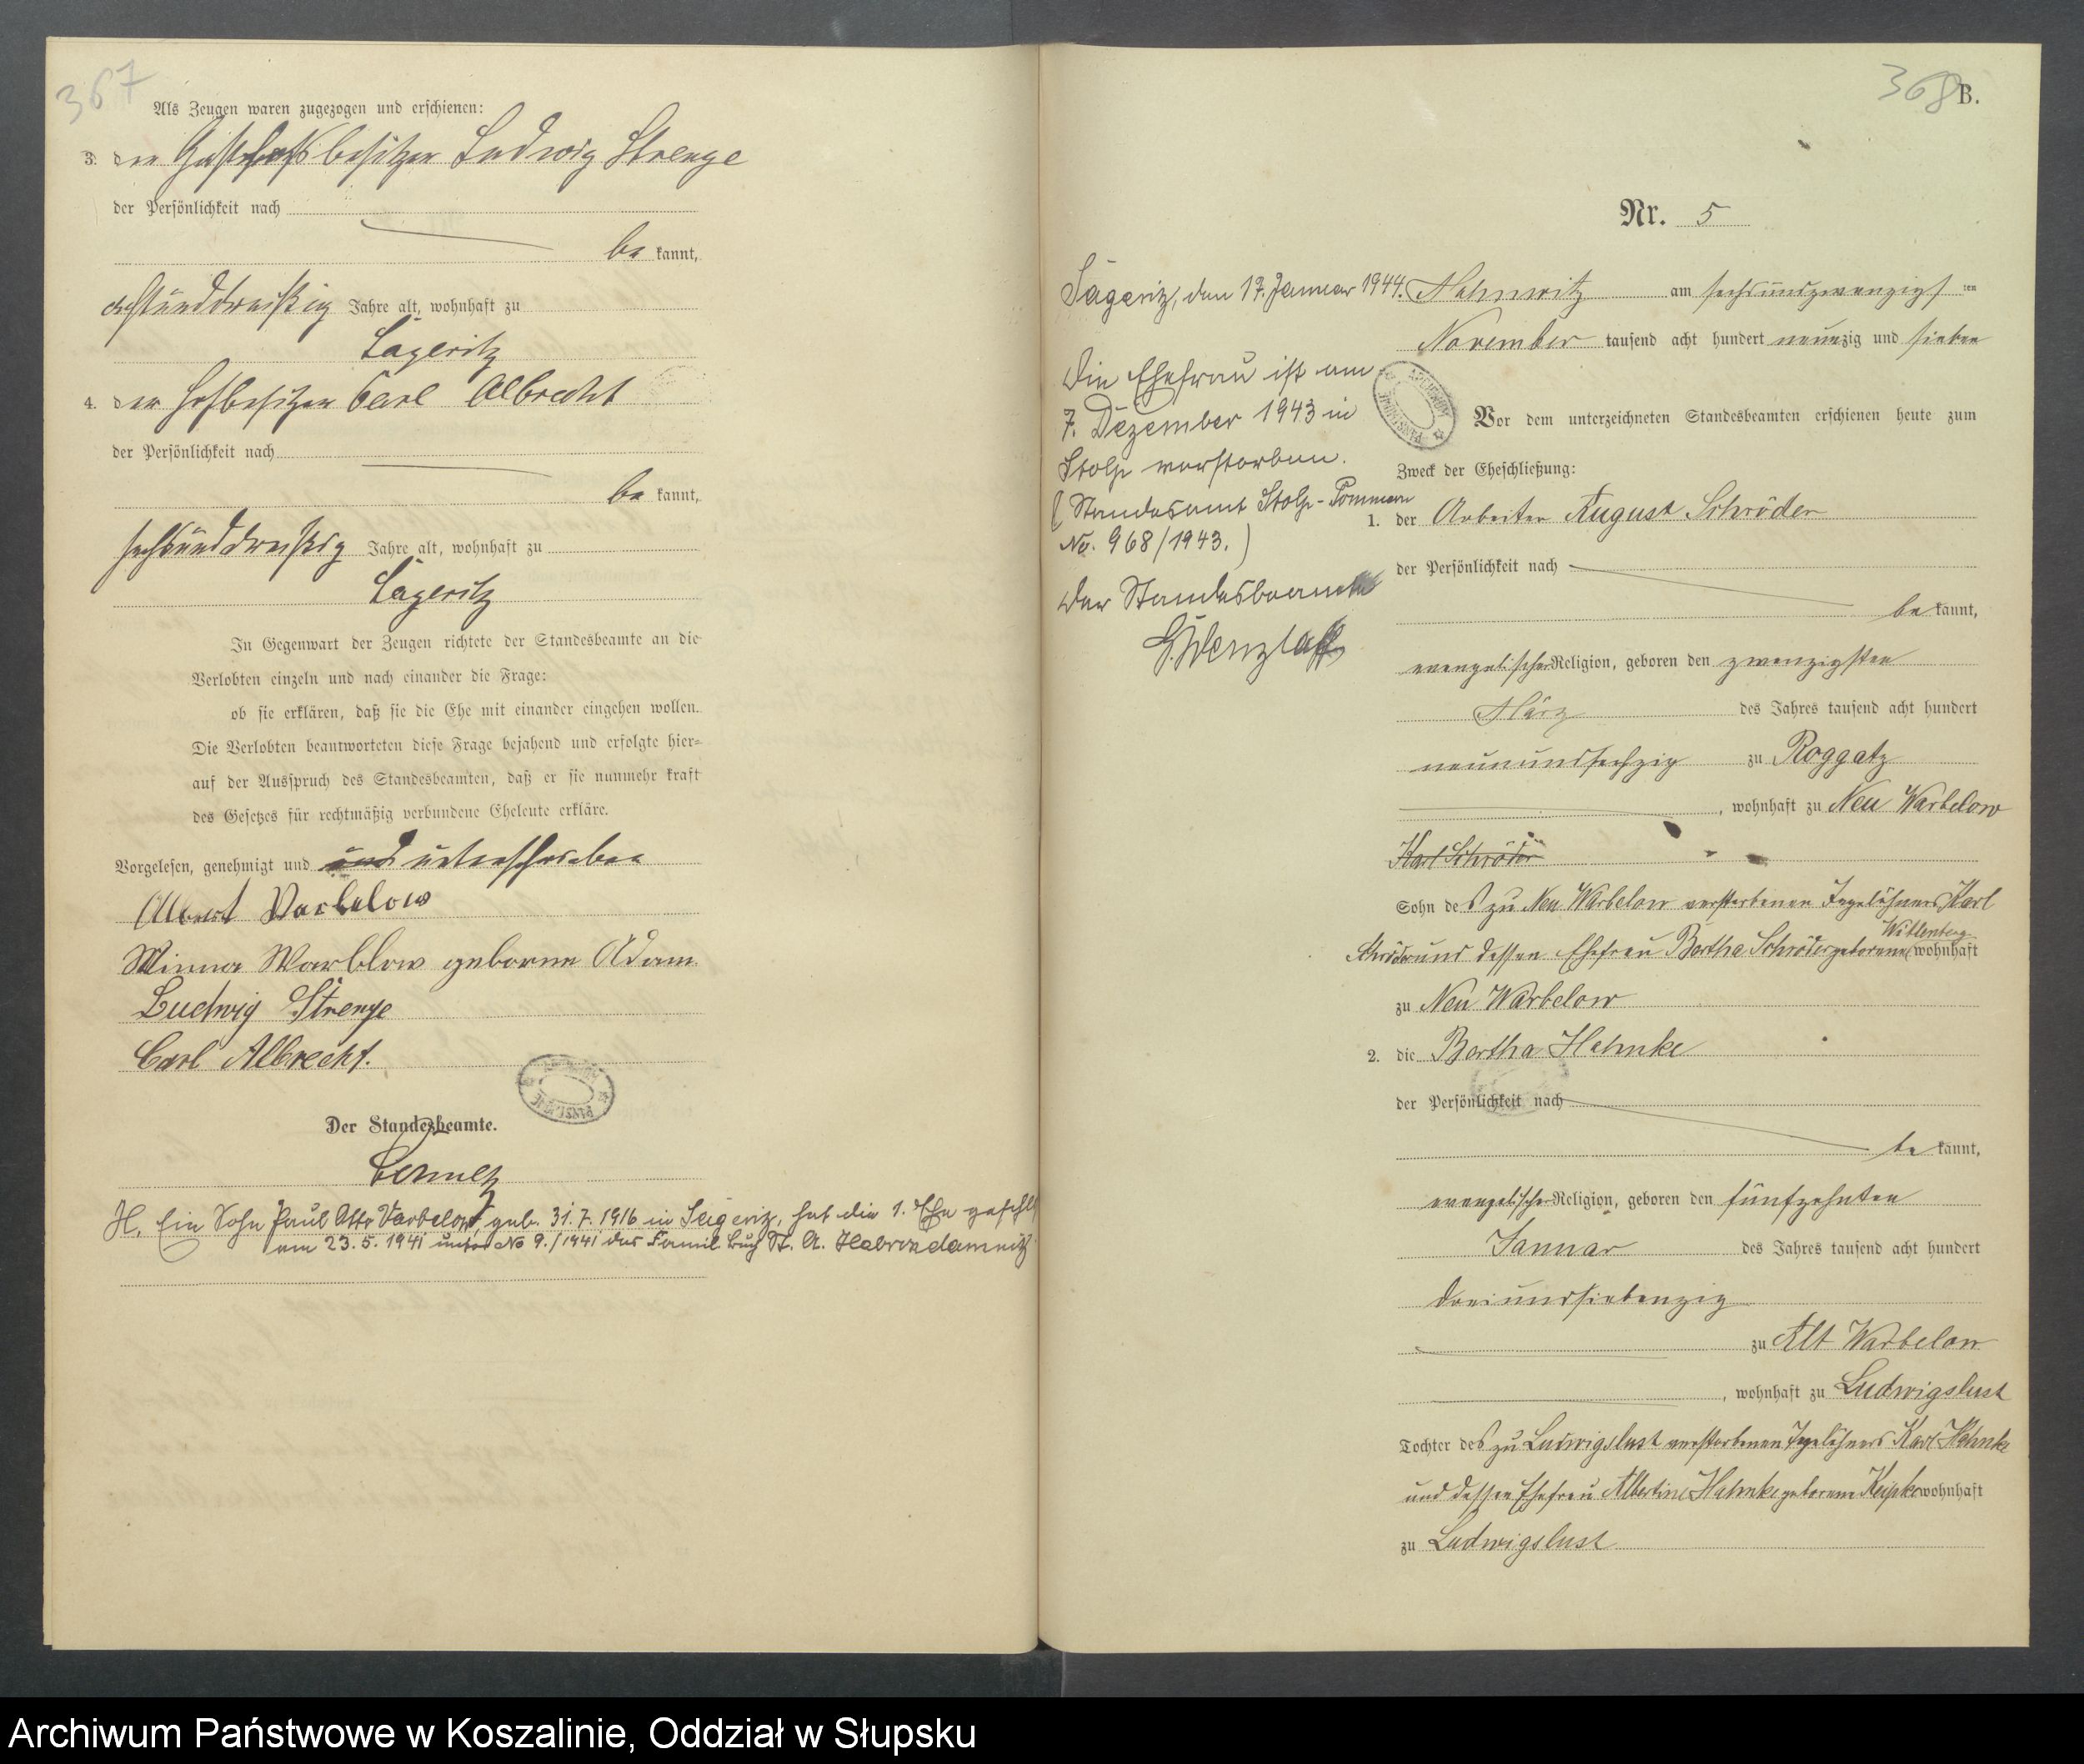 367
Als Zeugen waren zugezogen und erschienen:
3. der Gasthofsbesitzer Ludwig Strenge
der Persönlichkeit nach
be kannt,
achtunddreißig Jahre alt, wohnhaft zu
Lägeritz
4. der Hofbesitzer Carl Albrecht
der Persönlichkeit nach
be kannt,
sechsunddreißig Jahre alt, wohnhaft zu
Lägeritz
In Gegenwart der Zeugen richtete der Standesbeamte an die
Verlobten einzeln und nach einander die Frage:
ob sie erklären, daß sie die Ehe mit einander eingehen wollen.
Die Verlobten beantworteten diese Frage bejahend und erfolgte hier-
auf der Ausspruch des Standesbeamten, daß er sie nunmehr kraft
des Gesetzes für rechtmäßig verbundene Eheleute erkläre.
Vorgelesen, genehmigt und und unterschrieben
Albert Varbelow
Minna Warblow geborne Adam.
Ludwig Strenge
Carl Albrecht.
Der Standesbeamte.
H. Ein Sohn Paul Otto Varbelow, geb. 31.7.1916 in Sageritz, hat die 1. Ehe geschl.
am 23. 5. 1941 unter No 9./1941 des Famil. Buch St. A. Hebrondamnitz
368
B.
Nr. 5
Sageritz, den 17. Januar 1944.
Die Ehefrau ist am
7. Dezember 1943 in
Stolp verstorben.
(Standesamt Stolp-Pommern
No. 968/1943.)
Der Standesbeamte
G. Wenzlaff
Hahnwitz am sechsundzwanzigsten
November tausend acht hundert neunzig und sieben
ARCHIWUM PAŃSTWOWE
Vor dem unterzeichneten Standesbeamten erschienen heute zum
Zweck der Eheschließung:
1. der Arbeiter August Schröder
der Persönlichkeit nach
be kannt,
evangelischer Religion, geboren den zwanzigsten
März des Jahres tausend acht hundert
neunundsechzig zu Roggatz
, wohnhaft zu Neu Warbelow
Karl Schröder
Sohn des zu Neu Warbelow verstorbenen Tagelöhners Karl
Schröder und dessen Ehefrau Bertha Schröder geborene Wittenberg wohnhaft
zu Neu Warbelow
2. die Bertha Hahnke
der Persönlichkeit nach
be kannt,
evangelischer Religion, geboren den fünfzehnten
Januar des Jahres tausend acht hundert
dreiundsiebenzig
zu Alt Warbelow
, wohnhaft zu Ludwigslust
Tochter des zu Ludwigslust verstorbenen Tagelöhners Karl Hahnke
und dessen Ehefrau Albertine Hahnke geborene Kupke wohnhaft
zu Ludwigslust
ARCHIWUM PAŃSTWOWE
Archiwum Państwowe w Koszalinie, Oddział w Słupsku